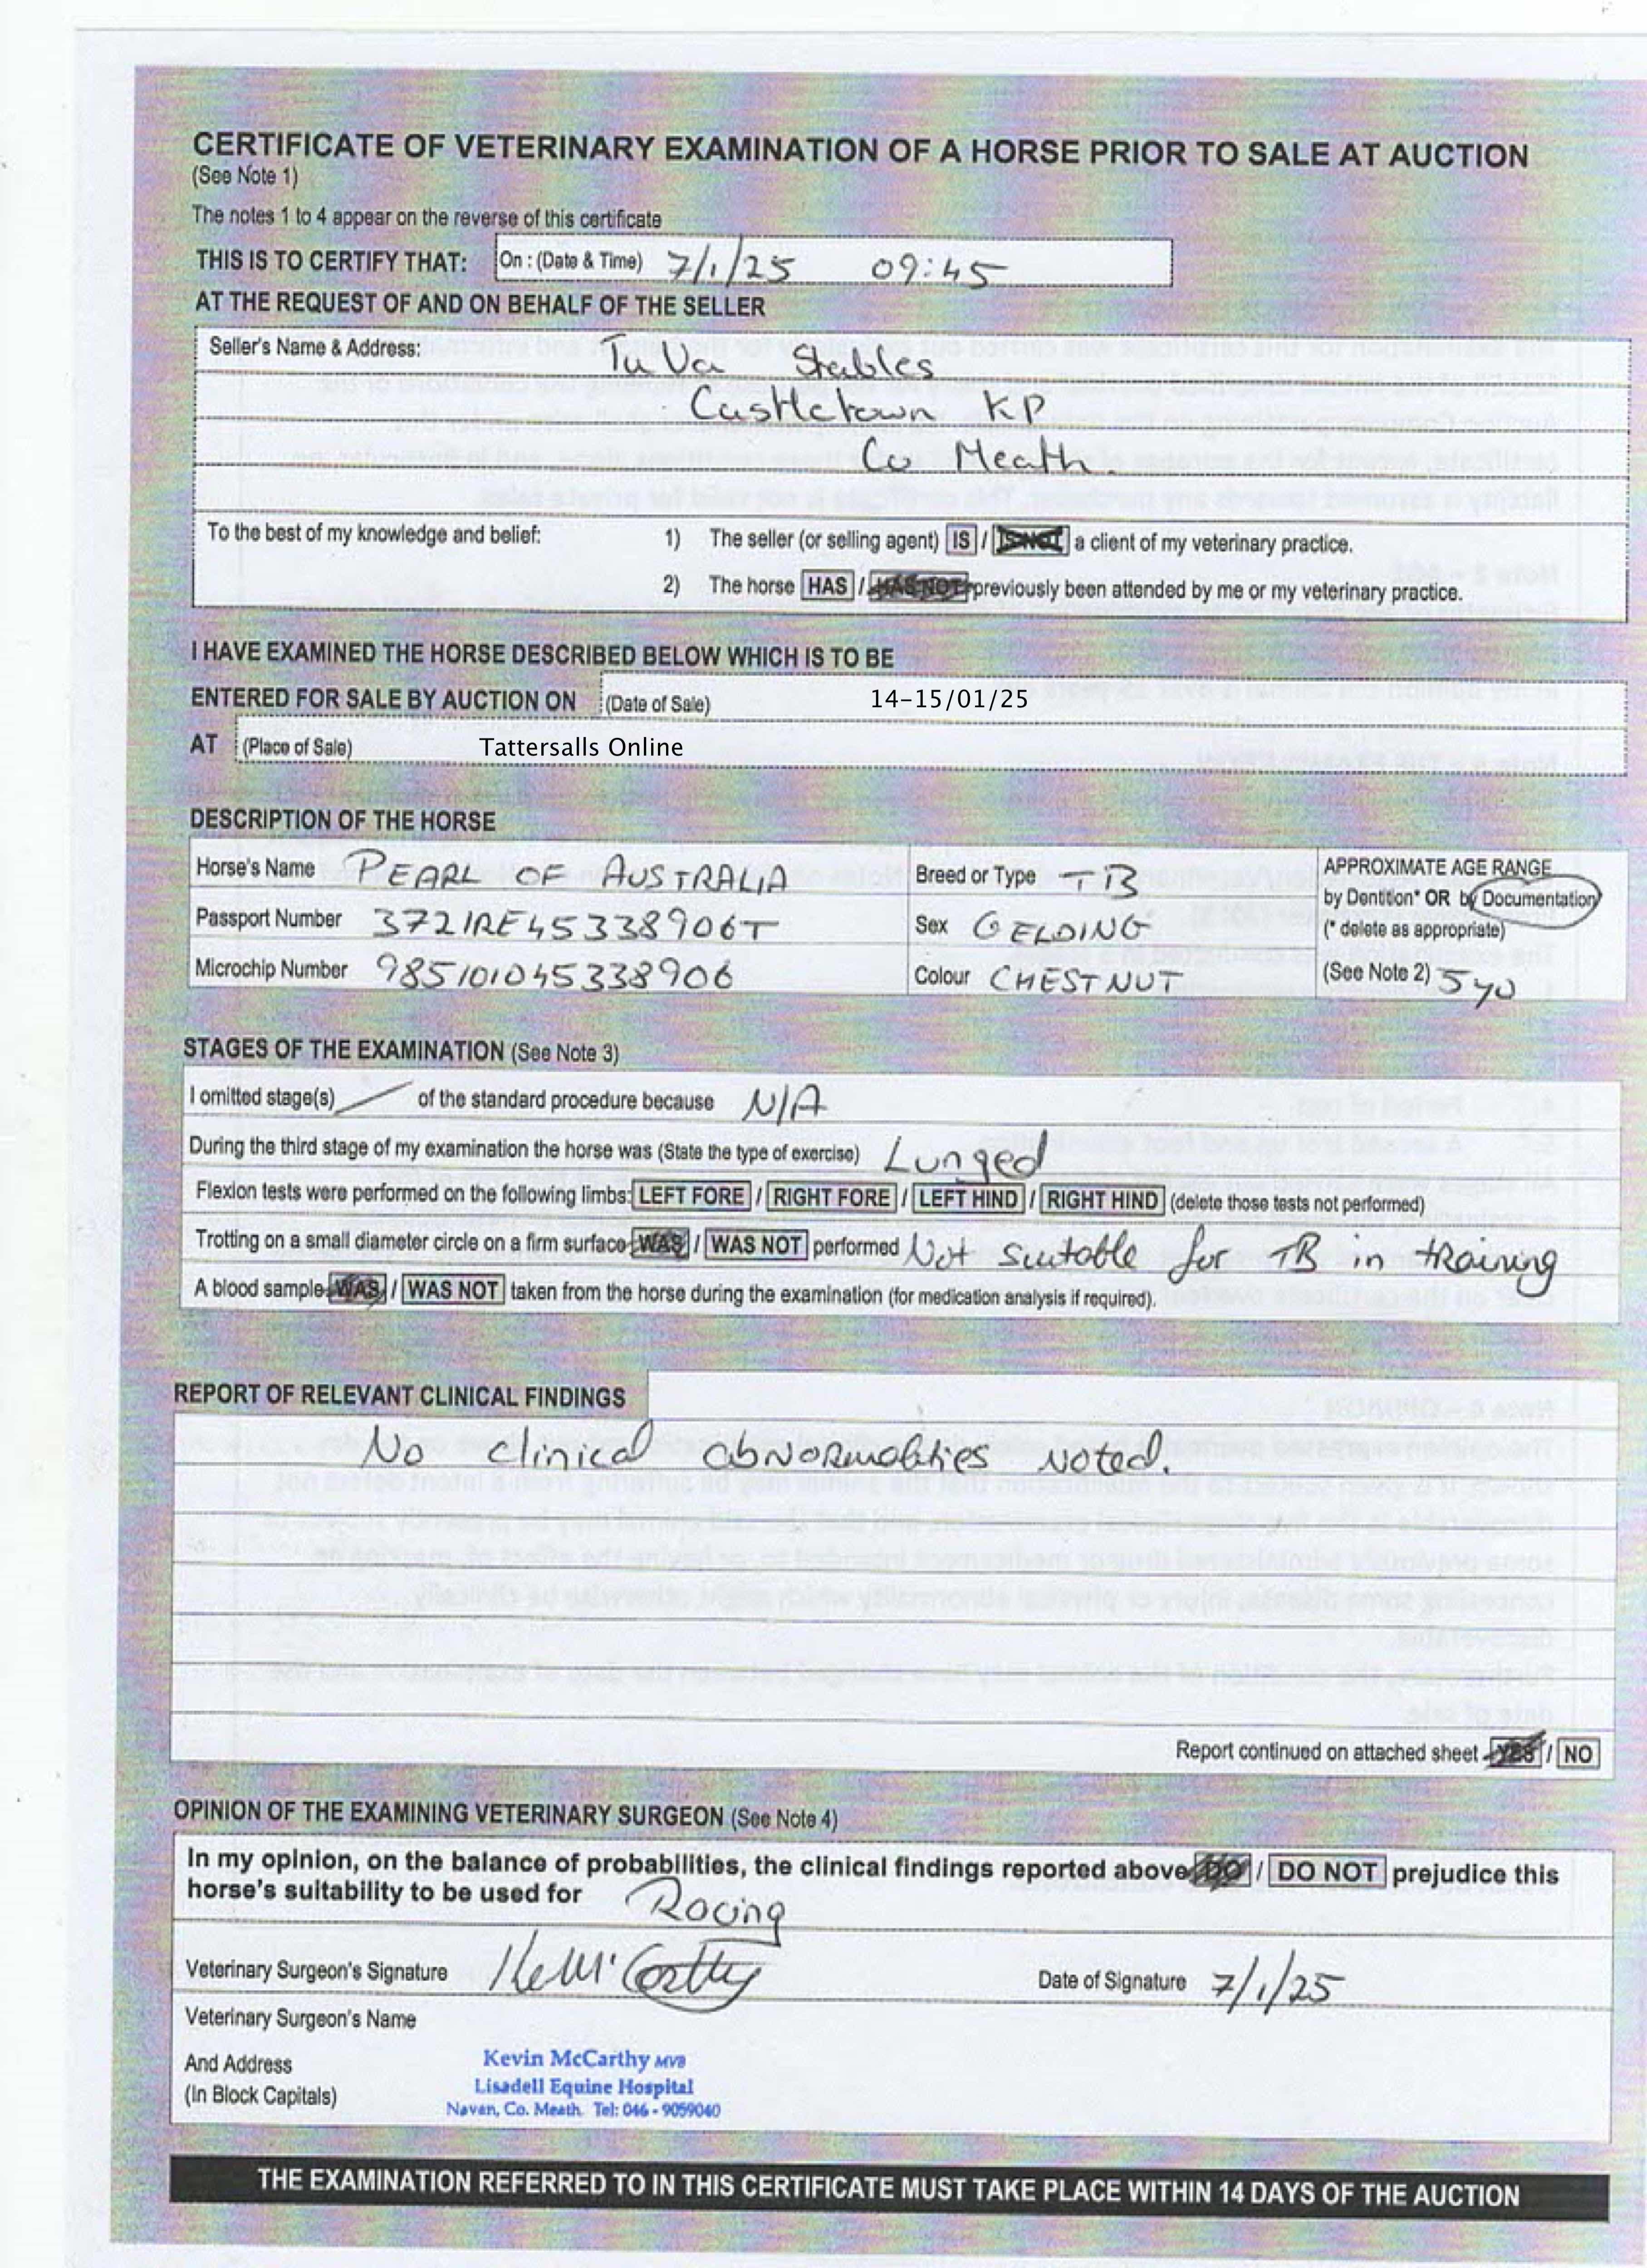 CERTIFICATE OF VETERINARY EXAMINATION OF A HORSE PRIOR TO SALE AT AUCTION
(See Note 1)
The notes 1 to 4 appear on the reverse of this certificate
THIS IS TO CERTIFY THAT: On : (Date & Time) 7/1/25 09:45
AT THE REQUEST OF AND ON BEHALF OF THE SELLER
Seller's Name & Address: TuVa Stables
Castletown KP
Co Meath.
To the best of my knowledge and belief: 1) The seller (or selling agent) IS / IS NOT a client of my veterinary practice.
2) The horse HAS / HAS NOT previously been attended by me or my veterinary practice.
I HAVE EXAMINED THE HORSE DESCRIBED BELOW WHICH IS TO BE
ENTERED FOR SALE BY AUCTION ON (Date of Sale) 14-15/01/25
AT (Place of Sale) Tattersalls Online
DESCRIPTION OF THE HORSE
Horse's Name PEARL OF AUSTRALIA Breed or Type TB APPROXIMATE AGE RANGE
by Dentition* OR by Documentation
Passport Number 372IRE45338906T Sex GELDING (* delete as appropriate)
Microchip Number 985101045338906 Colour CHESTNUT (See Note 2) 5yo
STAGES OF THE EXAMINATION (See Note 3)
I omitted stage(s) / of the standard procedure because N/A
During the third stage of my examination the horse was (State the type of exercise) Lunged
Flexion tests were performed on the following limbs: LEFT FORE / RIGHT FORE / LEFT HIND / RIGHT HIND (delete those tests not performed)
Trotting on a small diameter circle on a firm surface WAS / WAS NOT performed Not suitable for TB in training
A blood sample WAS / WAS NOT taken from the horse during the examination (for medication analysis if required).
REPORT OF RELEVANT CLINICAL FINDINGS
No clinical abnormalities noted.
Report continued on attached sheet YES / NO
OPINION OF THE EXAMINING VETERINARY SURGEON (See Note 4)
In my opinion, on the balance of probabilities, the clinical findings reported above DO / DO NOT prejudice this
horse's suitability to be used for Racing
Veterinary Surgeon's Signature Date of Signature 7/1/25
Veterinary Surgeon's Name
And Address
(In Block Capitals)
Kevin McCarthy MVB
Lisadell Equine Hospital
Navan, Co. Meath. Tel: 046 - 9059040
THE EXAMINATION REFERRED TO IN THIS CERTIFICATE MUST TAKE PLACE WITHIN 14 DAYS OF THE AUCTION